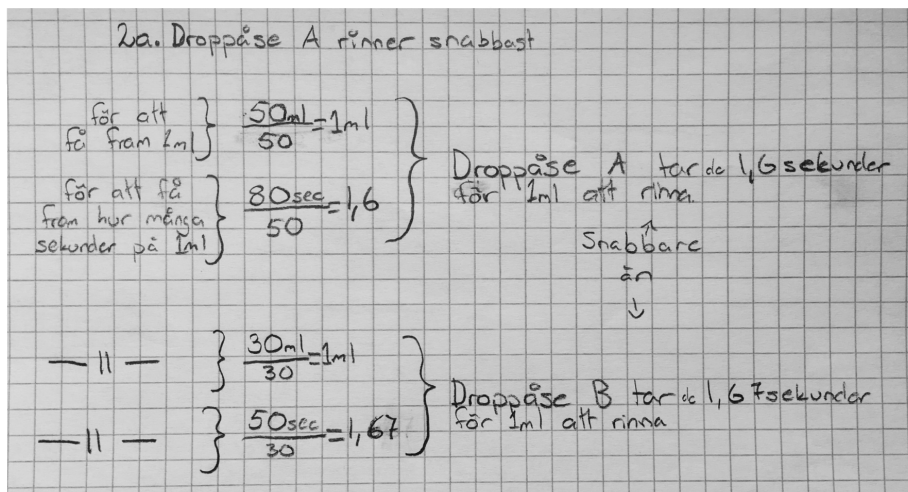 2a. Droppåse A rinner snabbast
för att
få fram 1ml
50ml/50=1ml
för att få
fram hur många
sekunder på 1ml
80sec/50=1,6
Droppåse A tar dc 1,6 sekunder
för 1ml att rinna.
Snabbare
än
— ıı —
30ml/30=1ml
— ıı —
50sec/30=1,67
Droppåse B tar dc 1,67 sekunder
för 1ml att rinna